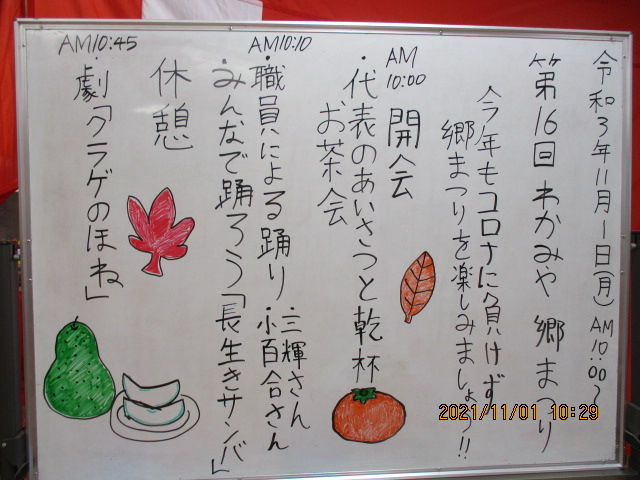 令和3年11月1日(月) AM10:00〜
第16回 わかみや 郷まつり
今年もコロナに負けず
郷まつりを楽しみましょう!!
AM10:00 開会
・代表のあいさつと乾杯
お茶会
AM10:10
・職員による踊り ・三輝さん
・小百合さん
・みんなで踊ろう「長生きサンバ」
休憩
AM10:45
・劇「クラゲのほね」
2021/11/01 10:29